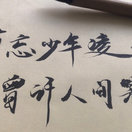 忘少年凌
曾许人间第